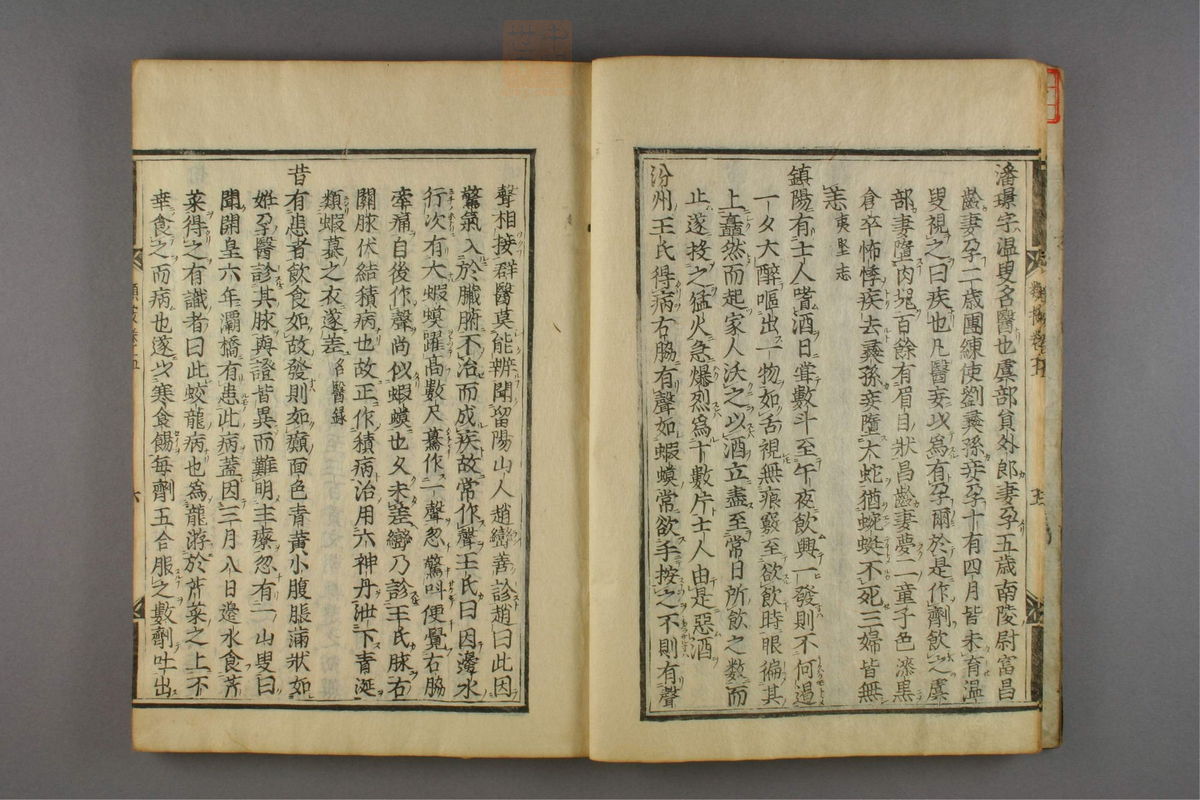 潘璟字温叟名醫也虞部員外郎妻孕五歳南陵尉富昌
齡妻孕二歳團練使劉彝孫妾孕十有四月皆未育温
叟視之曰疾也凡醫妄以為有孕爾於是作劑飲之虞
部妻墮肉塊百餘有眉目狀昌齡妻夢二童子色漆黒
倉卒怖悸疾去彝孫妾墮大蛇猶蜿蜒不死三婦皆無
恙夷堅志
鎮陽有士人嗜酒日常數斗至午夜飲興一發則不何遏
一夕大醉嘔出一物如舌視無痕竅至欲飲時眼徧其
上矗然而起家人沃之以酒立盡至常日所飲之数而
止遂投之猛火急爆烈為十數片士人由是惡酒
汾州王氏得病右脇有聲如蝦蟆常欲手按之不則有聲
聲相接群醫莫能辨聞留陽山人趙巒善診趙曰此因
驚氣入於臟腑不治而成疾故常作聲王氏曰因邊水
行次有大蝦蟆躍高數尺驀作一聲忽驚叫便覺右脇
牽痛自後作聲尚似蝦蟆也久未差巒乃診王氏脉右
關脉伏結積病也故正作積病治用六神丹泄下青涎
類蝦蟇之衣遂差名醫録
昔有患者飲食如故發則如癲面色青黄小腹脹満狀如
姙孕醫診其脉與證皆異而難明主療忽有一山叟曰
聞開皇六年灞橋有患此病蓋因三月八日邊水食芹
菜得之有識者曰此蛟龍病也為龍游於芹菜之上不
幸食之而病也遂以寒食餳每劑五合服之數劑吐出